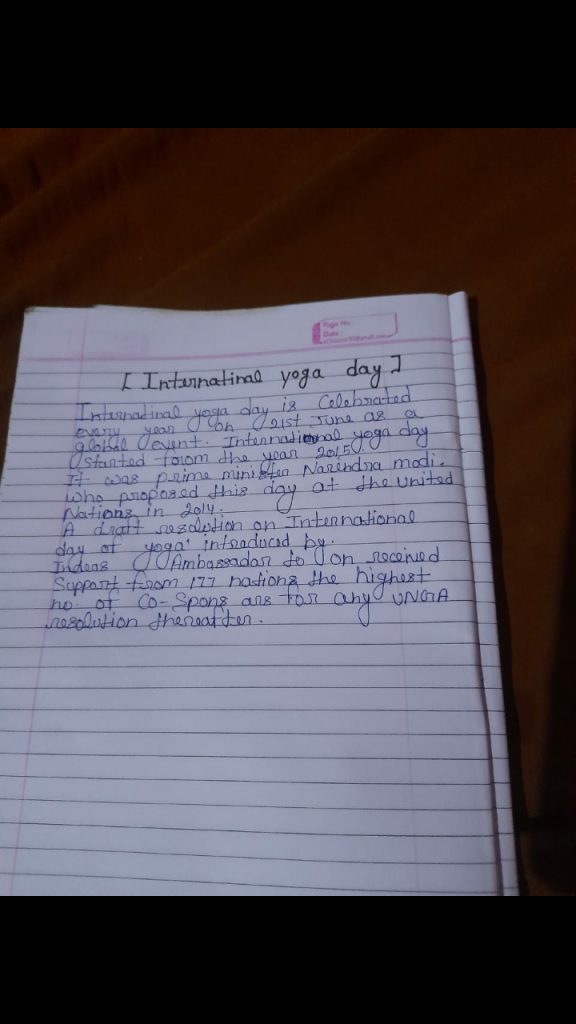 Page No.
Date
[ Internatinal yoga day ]
Internatinal yoga day is Celebrated
every year on 21st June as a
global event. International yoga day
started from the year 2015
It was prime minister Narendra modi.
Who proposed this day at the united
Nations in 2014.
A draft resolution on International
day of yoga' intraduced by.
Indeas Ambassador to on received
Support from 177 nations the highest
no. of Co-Spons ars for any UNGA
resolution thereafter.